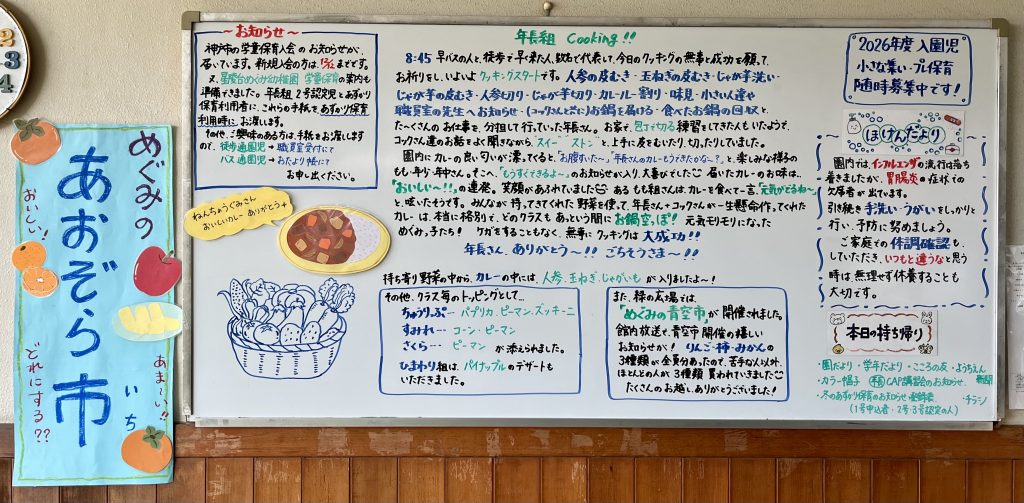 めぐみの
あおぞら市
いち
おいしい!
あま〜い!!
どれにする??
〜お知らせ〜
神戸市の学童保育入会のお知らせが、
届いています。新規入会の方は、12/12までです。
又、星陵台めぐみ幼稚園 学童保育の案内も
準備できました。年長組2号認定児とあずかり
保育利用者に、これらの手紙をあずかり保育
利用時にお渡します。
その他、ご興味のある方は、手紙をお渡しますの
で、徒歩通園児→職員室受付にて
バス通園児→おたより帳にて
お申し出ください。
ねんちゅうぐみさん
おいしいカレーありがとう
年長組 Cooking!!
8:45 早バスの人と、徒歩で早く来た人、数名で代表して、今日のクッキングの無事と成功を願って、
お祈りをし、いよいよクッキングスタートです。人参の皮むき・玉ねぎの皮むき・じゃが芋洗い・
じゃが芋の皮むき・人参切り・じゃが芋切り・カレールー割り・味見・小さい人達や
職員室の先生へお知らせ・(コックさんと共に)お鍋を届ける・食べたお鍋の回収と、
た〜くさんのお仕事を、分担して行っていた年長さん。お家で、包丁で切る練習をしてきた人もいたようで、
コックさん達のお話をよく聞きながら、“スイー”“ストン”と、上手に皮をむいたり、切ったりしていました。
園内にカレーの良い匂いが漂ってくると、「お腹すいたー」、「年長さんのカレーもうできたかな〜?」と楽しみな様子の
もも・年少・年中さん。そこへ、「もうすぐできるよ〜」のお知らせが入り、大喜びでした☺ 届いたカレーのお味は…
「おいしい〜!!」の連発。笑顔があふれていました☺ あるもも組さんは、カレーを食べて一言、「元気がでるね〜」
と、呟いたそうです。みんなが持ってきてくれた野菜を使って、年長さん+コックさんが一生懸命作ってくれた
カレーは、本当に格別で、どのクラスもあっという間にお鍋空っぽ! 元気モリモリになった
めぐみっ子たち! ケガをすることもなく、無事にクッキングは大成功!!
年長さん、ありがとう〜!! ごちそうさま〜!!
持ち寄り野菜の中から、カレーの中には、人参、玉ねぎ・じゃがいもが入りましたよ〜!
その他、クラス毎のトッピングとして…
ちゅうりっぷ…パプリカ、ピーマン、ズッキーニ
すみれ…コーン・ピーマン
さくら…ピーマン が添えられました。
ひまわり組は、パイナップルのデザートも
いただきました。
また、緑の広場では、
「めぐみの青空市」が開催されました。
館内放送で、青空市開催の嬉しい
お知らせが! りんご・柿・みかんの
3種類が全員分あったので、苦手な人以外、
ほとんどの人が、3種類買われていきました☺
たくさんのお越し、ありがとうございました!
2026年度入園児
小さな集い・プレ保育
随時募集中です!
ほけんだより
園内では、インフルエンザの流行は落ち
着きましたが、胃腸炎の症状での
欠席者が出ています。
引き続き手洗い・うがいをしっかりと
行い、予防に努めましょう。
ご家庭での体調確認も、
していただき、いつもと違うなと思う
時は、無理せず休養することも
大切です。
本日の持ち帰り
・園だより・学年だより・こころの友・ようちえん
新聞
・カラー帽子・CAP講習会のお知らせ
・冬のあずかり保育のお知らせ・登録表 ・チラシ
(1号申込者・2号・3号認定の人)
2
3
4